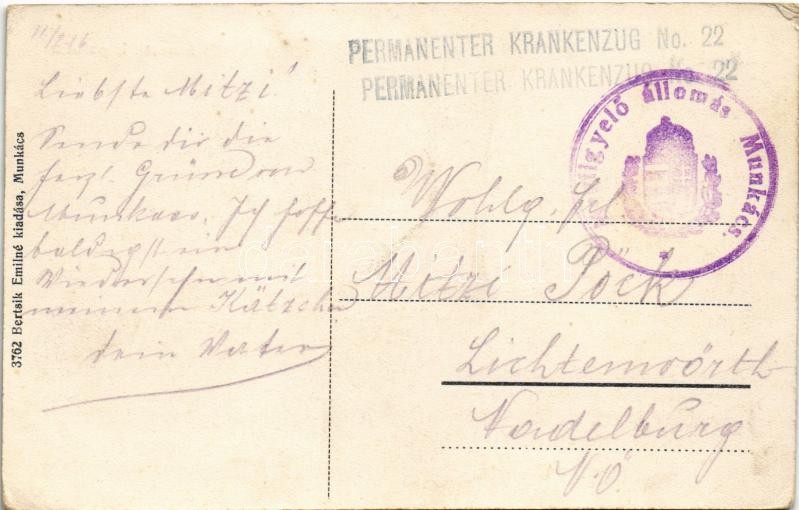 11/2 16
PERMANENTER KRANKENZUG No. 22
PERMANENTER KRANKENZUG No. 22
Liebste Mitzi!
Sende dir die
herzl. Grüße von
Munkacs. Ich hoffe
baldigst ein
Wiedersehn mit
meinem Kätzchen
dein Vater
Wohlg. Frl
Mitzi Pöck
Lichtenwörth
Nadelburg
N.Ö.
állomás Munkács.
3762 Berták Emilné kiadása, Munkács